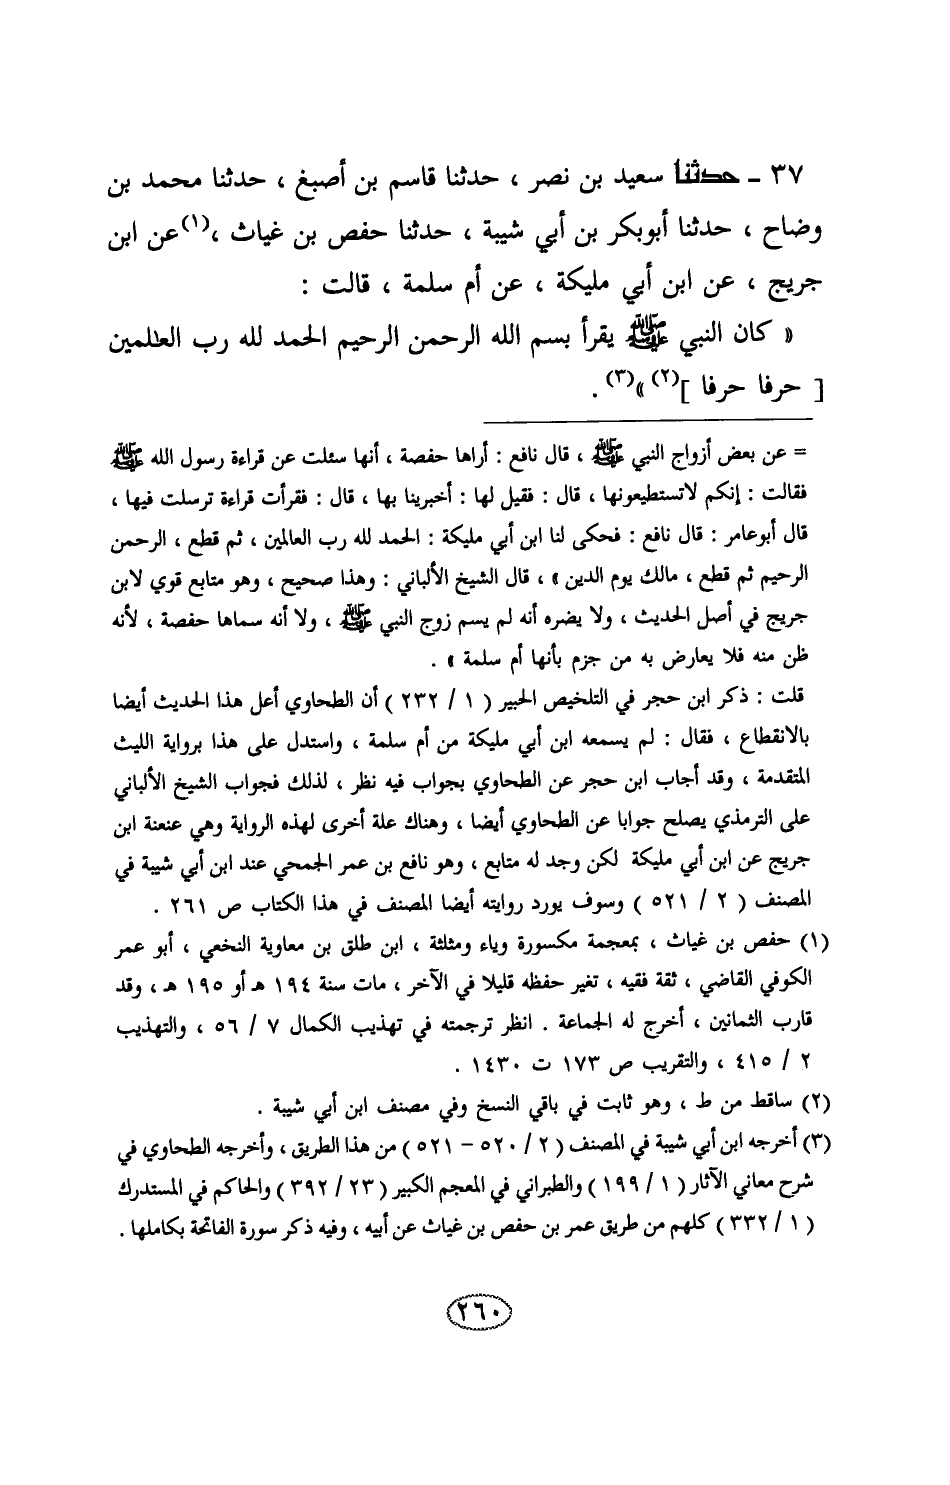 ٣٧ ـ حدثنا سعيد بن نصر ، حدثنا قاسم بن أصبغ ، حدثنا محمد بن
وضاح ، حدثنا أبوبكر بن أبي شيبة ، حدثنا حفص بن غياث ،(١) عن ابن
جريج ، عن ابن أبي مليكة ، عن أم سلمة ، قالت :
« كان النبي ﷺ يقرأ بسم الله الرحمن الرحيم الحمد لله رب العٰلمين
[ حرفا حرفا ](٢) »(٣) .
= عن بعض أزواج النبي ﷺ ، قال نافع : أراها حفصة ، أنها سئلت عن قراءة رسول الله ﷺ
فقالت : إنكم لاتستطيعونها ، قال : فقيل لها : أخبرينا بها ، قال : فقرأت قراءة ترسلت فيها ،
قال أبوعامر : قال نافع : فحكى لنا ابن أبي مليكة : الحمد لله رب العالمين ، ثم قطع ، الرحمن
الرحيم ثم قطع ، مالك يوم الدين » ، قال الشيخ الألباني : وهذا صحيح ، وهو متابع قوي لابن
جريج في أصل الحديث ، ولا يضره أنه لم يسم زوج النبي ﷺ ، ولا أنه سماها حفصة ، لأنه
ظن منه فلا يعارض به من جزم بأنها أم سلمة » .
قلت : ذكر ابن حجر في التلخيص الحبير ( ١ / ٢٣٢ ) أن الطحاوي أعل هذا الحديث أيضا
بالانقطاع ، فقال : لم يسمعه ابن أبي مليكة من أم سلمة ، واستدل على هذا برواية الليث
المتقدمة ، وقد أجاب ابن حجر عن الطحاوي بجواب فيه نظر ، لذلك فجواب الشيخ الألباني
على الترمذي يصلح جوابا عن الطحاوي أيضا ، وهناك علة أخرى لهذه الرواية وهي عنعنة ابن
جريج عن ابن أبي مليكة لكن وجد له متابع ، وهو نافع بن عمر الجمحي عند ابن أبي شيبة في
المصنف ( ٢ / ٥٢١ ) وسوف يورد روايته أيضا المصنف في هذا الكتاب ص ٢٦١ .
(١) حفص بن غياث ، بمعجمة مكسورة وياء ومثلثة ، ابن طلق بن معاوية النخعي ، أبو عمر
الكوفي القاضي ، ثقة فقيه ، تغير حفظه قليلا في الآخر ، مات سنة ١٩٤ هـ أو ١٩٥ هـ ، وقد
قارب الثمانين ، أخرج له الجماعة . انظر ترجمته في تهذيب الكمال ٧ / ٥٦ ، والتهذيب
٢ / ٤١٥ ، والتقريب ص ١٧٣ ت ١٤٣٠ .
(٢) ساقط من ط ، وهو ثابت في باقي النسخ وفي مصنف ابن أبي شيبة .
(٣) أخرجه ابن أبي شيبة في المصنف ( ٢ / ٥٢٠ – ٥٢١ ) من هذا الطريق ، وأخرجه الطحاوي في
شرح معاني الآثار ( ١ / ١٩٩ ) والطبراني في المعجم الكبير ( ٢٣ / ٣٩٢ ) والحاكم في المستدرك
( ١ / ٣٣٢ ) كلهم من طريق عمر بن حفص بن غياث عن أبيه ، وفيه ذكر سورة الفاتحة بكاملها .
٢٦٠